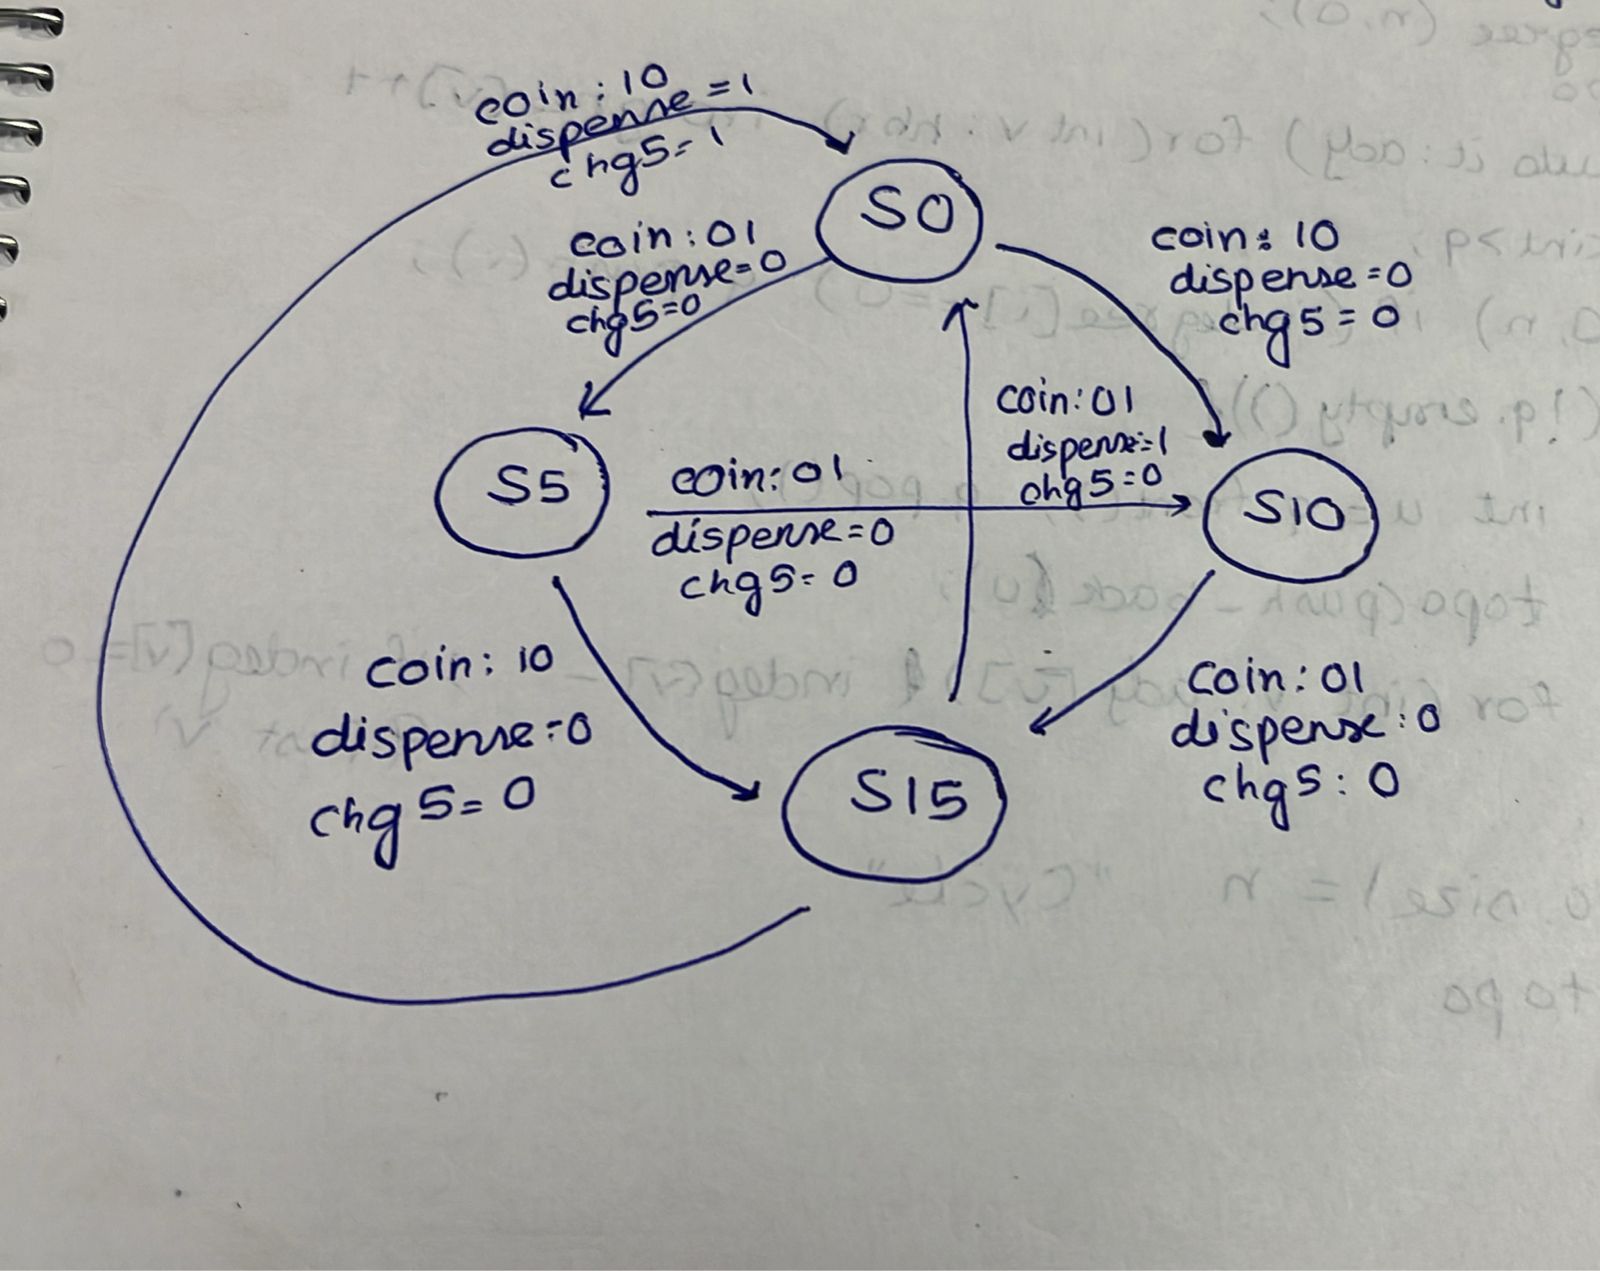 coin : 10
dispense = 1
chg5 = 1
S0
coin : 01
dispense = 0
chg5 = 0
coin : 10
dispense = 0
chg 5 = 0
coin : 01
dispense = 1
chg 5 = 0
S5
coin : 01
dispense = 0
chg 5 = 0
S10
coin : 10
dispense = 0
chg 5 = 0
coin : 01
dispense : 0
chg 5 : 0
S15